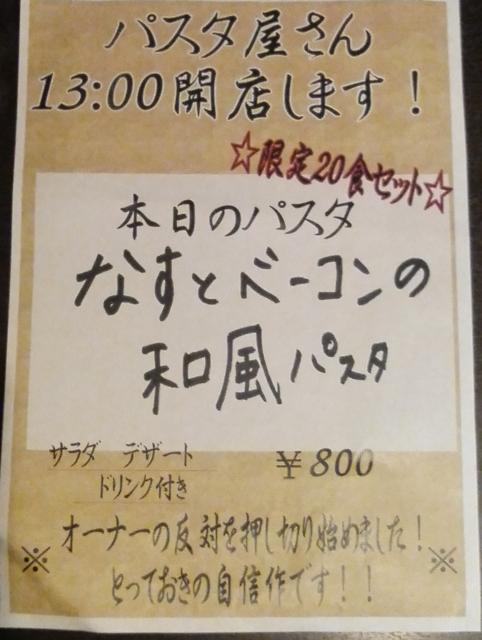 パスタ屋さん
13:00開店します！
☆限定20食セット☆
本日のパスタ
なすとベーコンの
和風パスタ
サラダ　デザート
ドリンク付き
￥800
オーナーの反対を押し切り始めました！
※とっておきの自信作です！！※